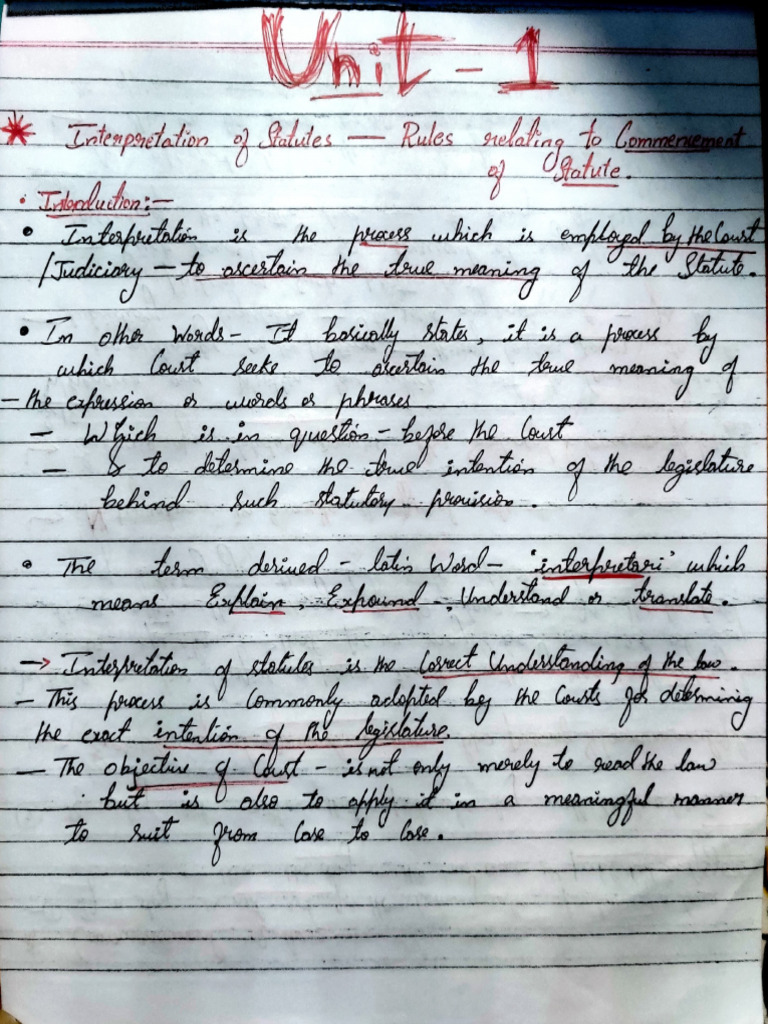 Unit - 1
* Interpretation of Statutes — Rules relating to Commencement
of Statute.
• Introduction:—
• Interpretation is the process which is employed by the Court
/Judiciary — to ascertain the true meaning of the Statute.
• In other words - It basically states, it is a process by
which Court seeks to ascertain the true meaning of
- the expression or words or phrases
- Which is in question - before the Court
- & to determine the true intention of the legislature
behind such statutory provision.
• The term derived - latin Word - 'interpretari' which
means Explain, Expound, Understand or translate.
-> Interpretation of statutes is the Correct Understanding of the law.
- This process is Commonly adopted by the Courts for determining
the exact intention of the legislature.
- The objective of Court - is not only merely to read the law
but is also to apply it in a meaningful manner
to suit from Case to Case.